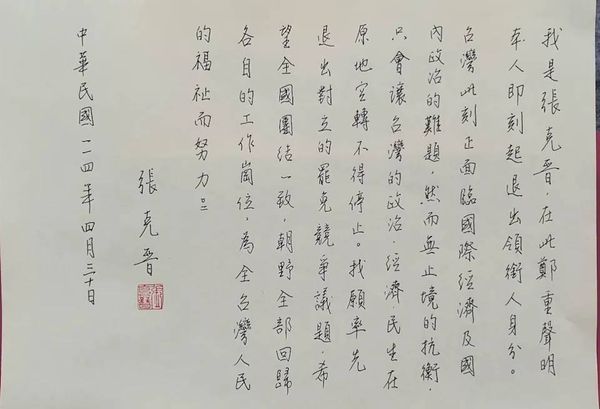 我是張克晉，在此鄭重聲明
本人即刻起退出領銜人身分。
台灣此刻正面臨國際經濟及國
內政治的難題，然而無止境的抗衡，
只會讓台灣的政治，經濟民生在
原地空轉不得停止。我願率先
退出對立的罷免競爭議題，希
望全國團結一致，朝野全部回歸
各自的工作崗位，為全台灣人民
的福祉而努力。
張克晉
中華民國一一四年四月三十日